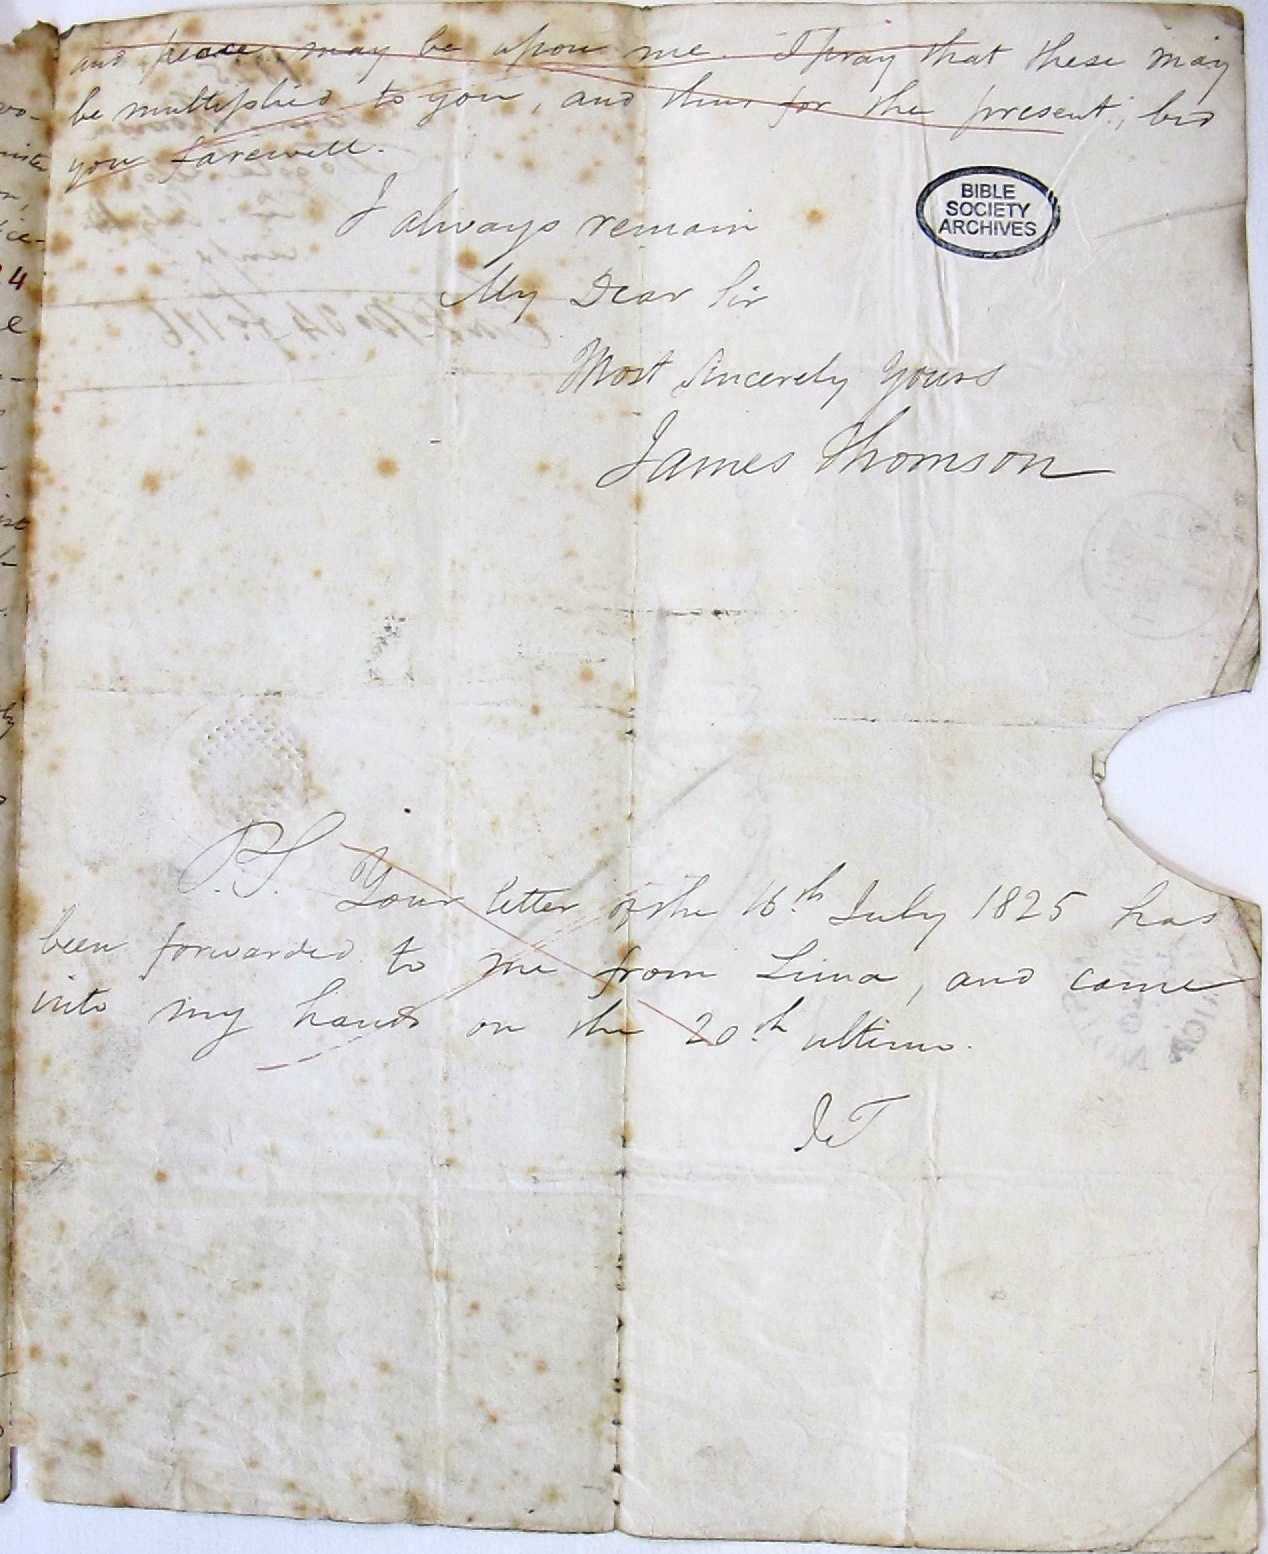 and peace may be upon me. I pray that these may
be multiplied to you, and thus for the present, bid
you farewell.
I always remain
My Dear Sir
Most Sincerely Yours
James Thomson
BIBLE
SOCIETY
ARCHIVES
P.S. Your letter of the 16th July 1825 has
been forwarded to me from Lima, and came
into my hands on the 20th ultimo.
J T